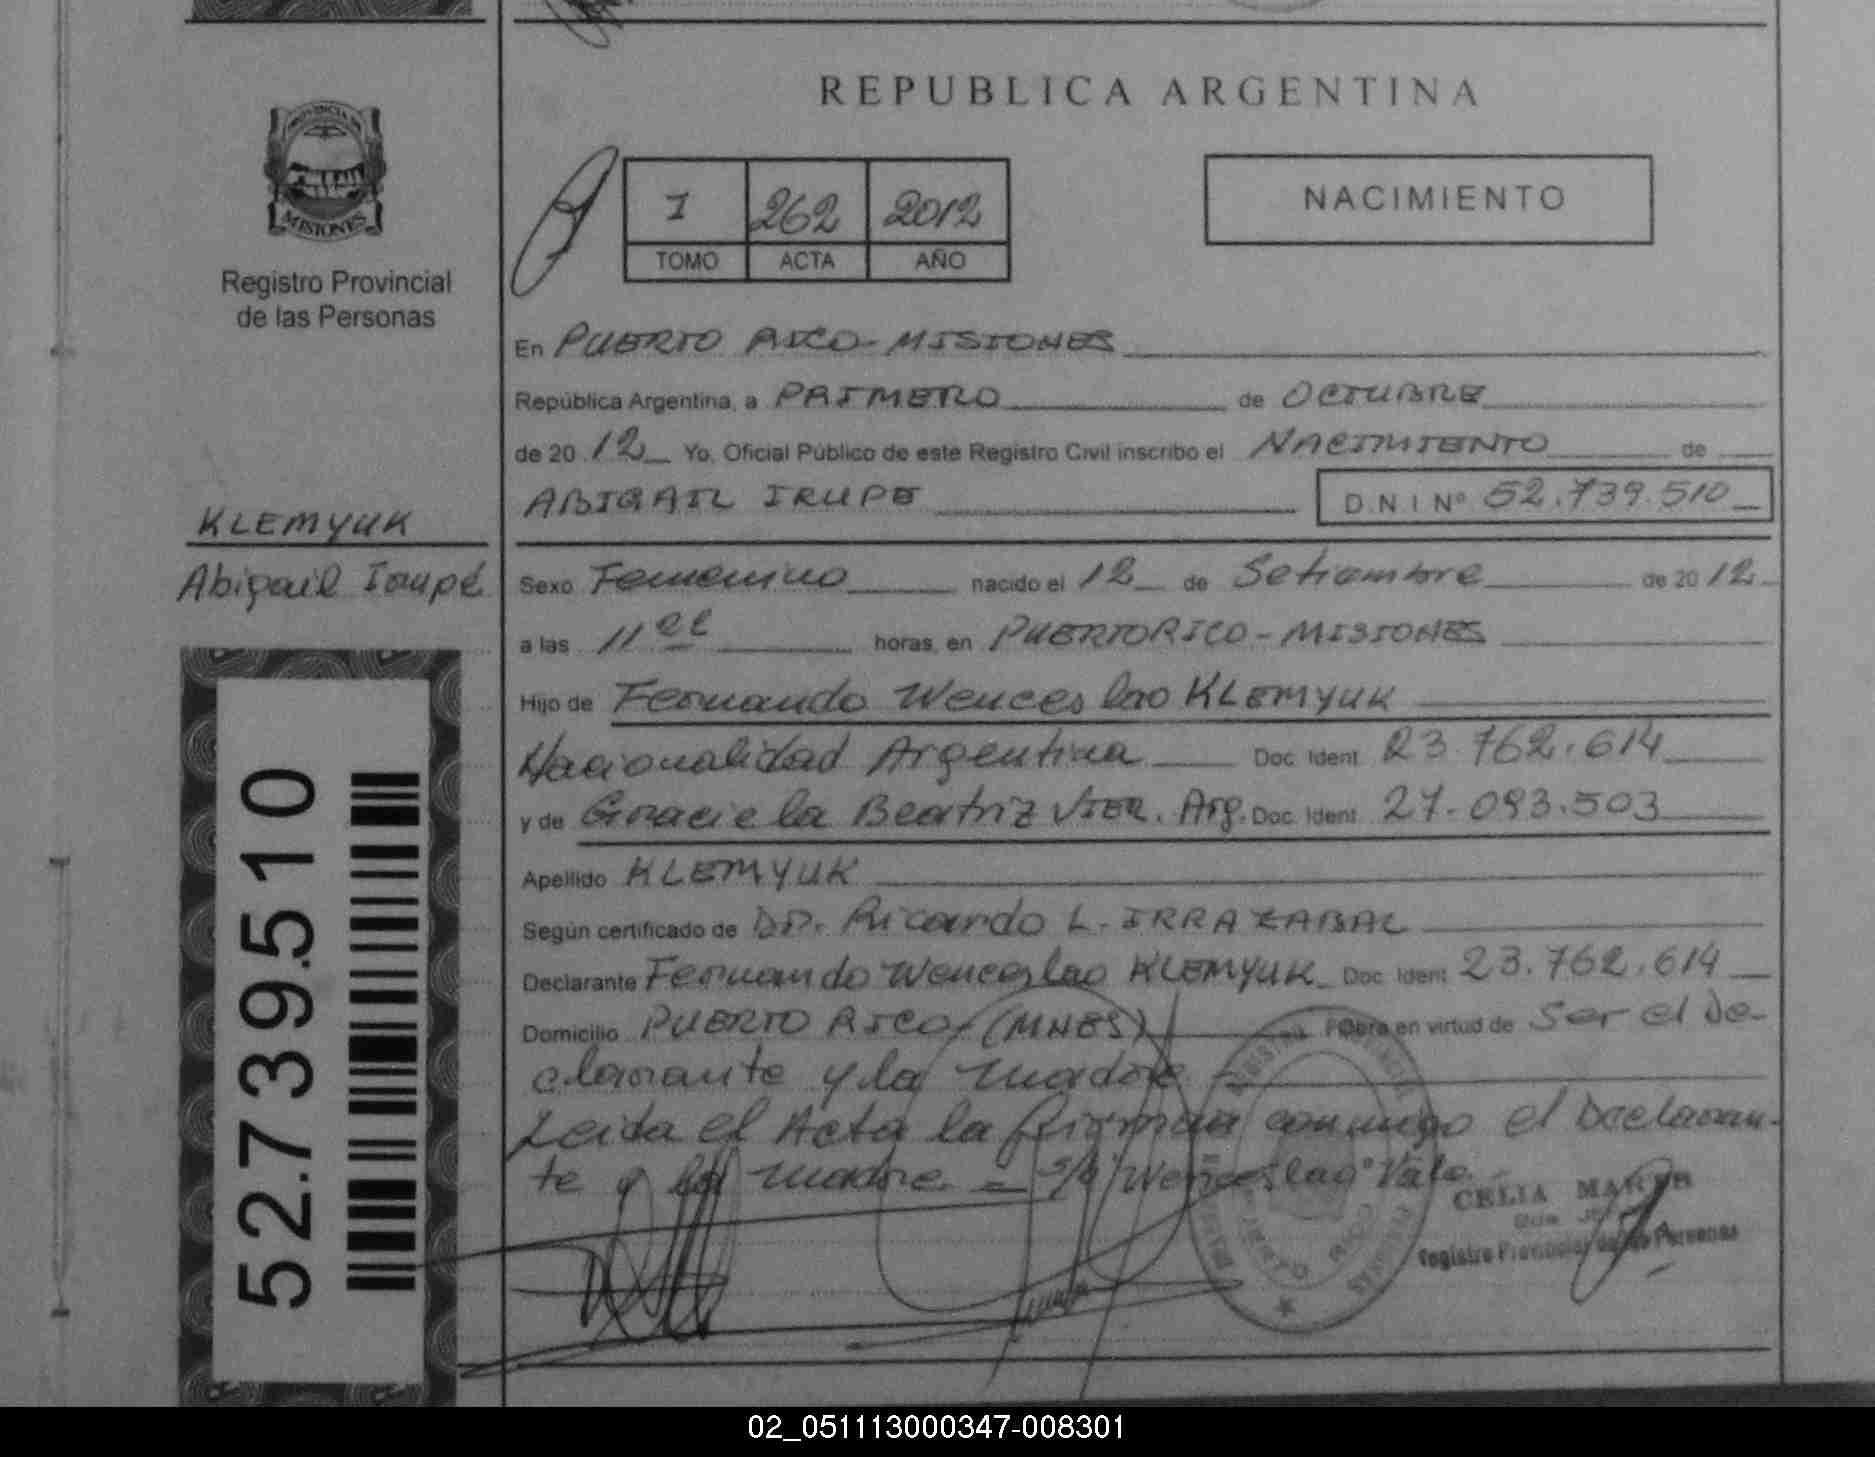 REPUBLICA ARGENTINA
PROVINCIA DE
MISIONES
Registro Provincial
de las Personas
I 262 2012
TOMO ACTA AÑO
NACIMIENTO
En PUERTO RICO - MISIONES
República Argentina, a PRIMERO de OCTUBRE
de 20 12 Yo, Oficial Público de este Registro Civil inscribo el NACIMIENTO de
ABIGAIL IRUPE D.N.I Nº 52.739.510
KLEMYUK
Abigail Irupé
Sexo Femenino nacido el 12 de Setiembre de 20 12
a las 11 horas, en PUERTO RICO - MISIONES
Hijo de Fernando Wenceslao KLEMYUK
Nacionalidad Argentina Doc. Ident. 23.762.614
y de Graciela Beatriz VIER. Arg. Doc. Ident. 27.093.503
Apellido KLEMYUK
Según certificado de DR. Ricardo L. IRRAZABAL
Declarante Fernando Wenceslao KLEMYUK Doc. Ident. 23.762.614
Domicilio PUERTO RICO (MNES) Obra en virtud de Ser el De-
clarante y la madre
Leida el Acta la firman conmigo el Declaran-
te y la madre = S/R "Wenceslao" Vale.
52.739.510
CELIA
Registro Provincial de las Personas
PUERTO RICO
02_051113000347-008301